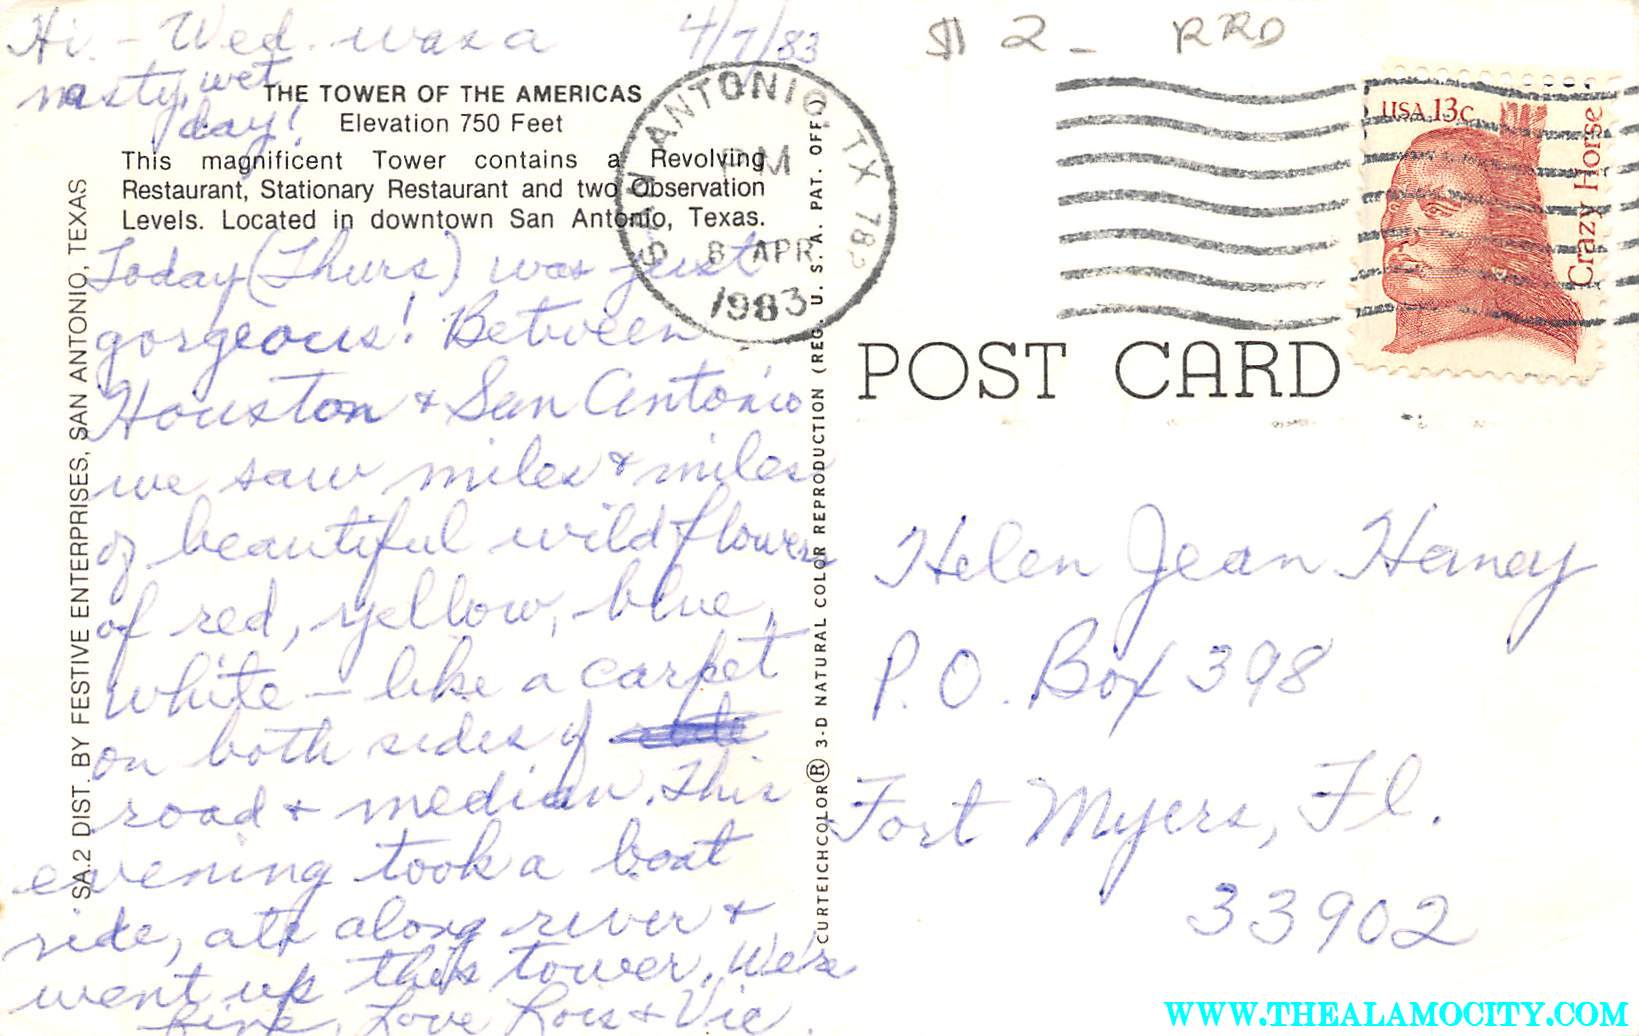 Hi - Wed. was a
nasty, wet
day!
4/7/83
$2- RRD
THE TOWER OF THE AMERICAS
Elevation 750 Feet
This magnificent Tower contains a Revolving
Restaurant, Stationary Restaurant and two Observation
Levels. Located in downtown San Antonio, Texas.
Today (Thurs) was just
gorgeous! Between
Houston & San Antonio
we saw miles & miles
of beautiful wildflowers
of red, yellow, blue,
white - like a carpet
on both sides of
road & median. This
evening took a boat
ride, ate along river &
went up this tower. We're
fine, Love Lois & Vic.
SA.2 DIST. BY FESTIVE ENTERPRISES, SAN ANTONIO, TEXAS
CURTEICHCOLOR® 3-D NATURAL COLOR REPRODUCTION (REG. U. S. A. PAT. OFF.)
SAN ANTONIO, TX 782
PM
8 APR
1983
USA 13c
Crazy Horse
POST CARD
Helen Jean Haney
P.O. Box 398
Fort Myers, Fl.
33902
WWW.THEALAMOCITY.COM